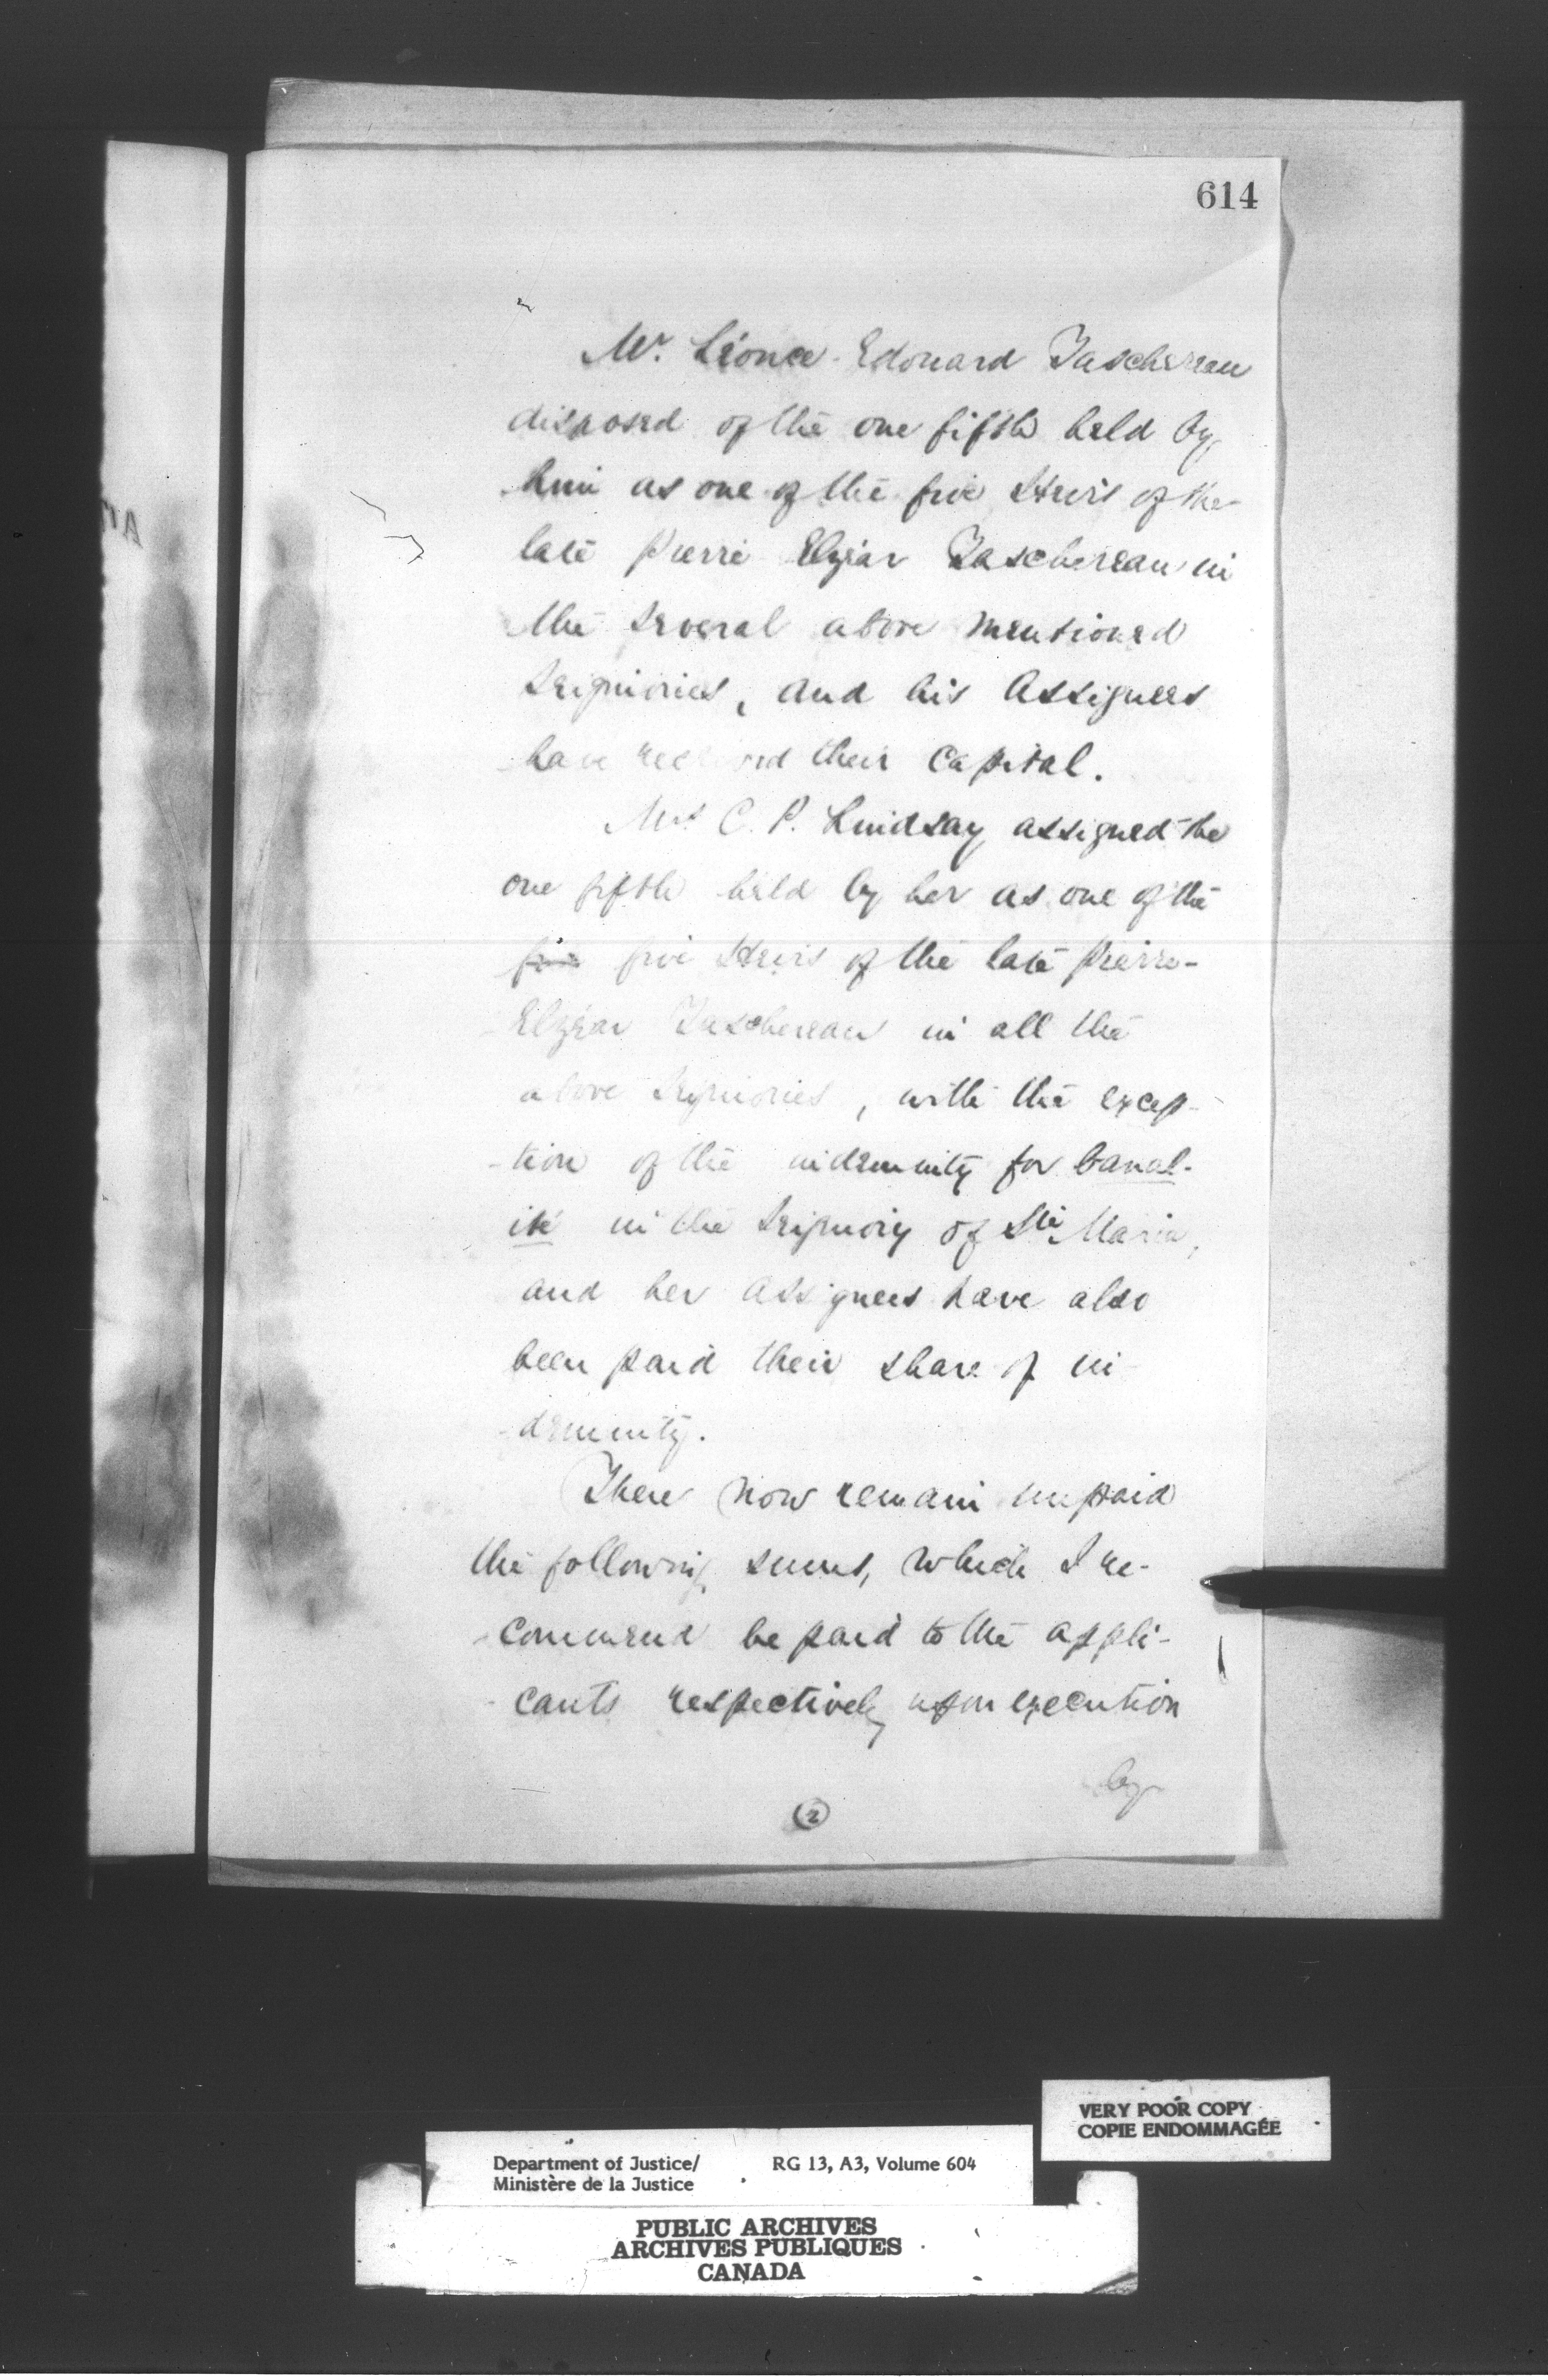 614
Mr. Léonce-Edouard Taschereau
disposed of the one fifth held by
him as one of the five Heirs of the
late Pierre Elzéar Taschereau in
the several above mentioned
Seigniories, and his Assignees
have received their Capital.
Mrs C. P. Lindsay assigned the
one fifth held by her as one of the
five five Heirs of the late Pierre-
Elzéar Taschereau in all the
above Seigniories, with the excep-
-tion of the indemnity for banal-
ité in the Seigniory of Ste Marie,
and her assignees have also
been paid their share of in-
-demnity.
There now remain unpaid
the following sums, which I re-
-commend be paid to the appli-
-cants respectively upon execution
by
2
VERY POOR COPY
COPIE ENDOMMAGÉE
Department of Justice/ RG 13, A3, Volume 604
Ministère de la Justice
PUBLIC ARCHIVES
ARCHIVES PUBLIQUES
CANADA